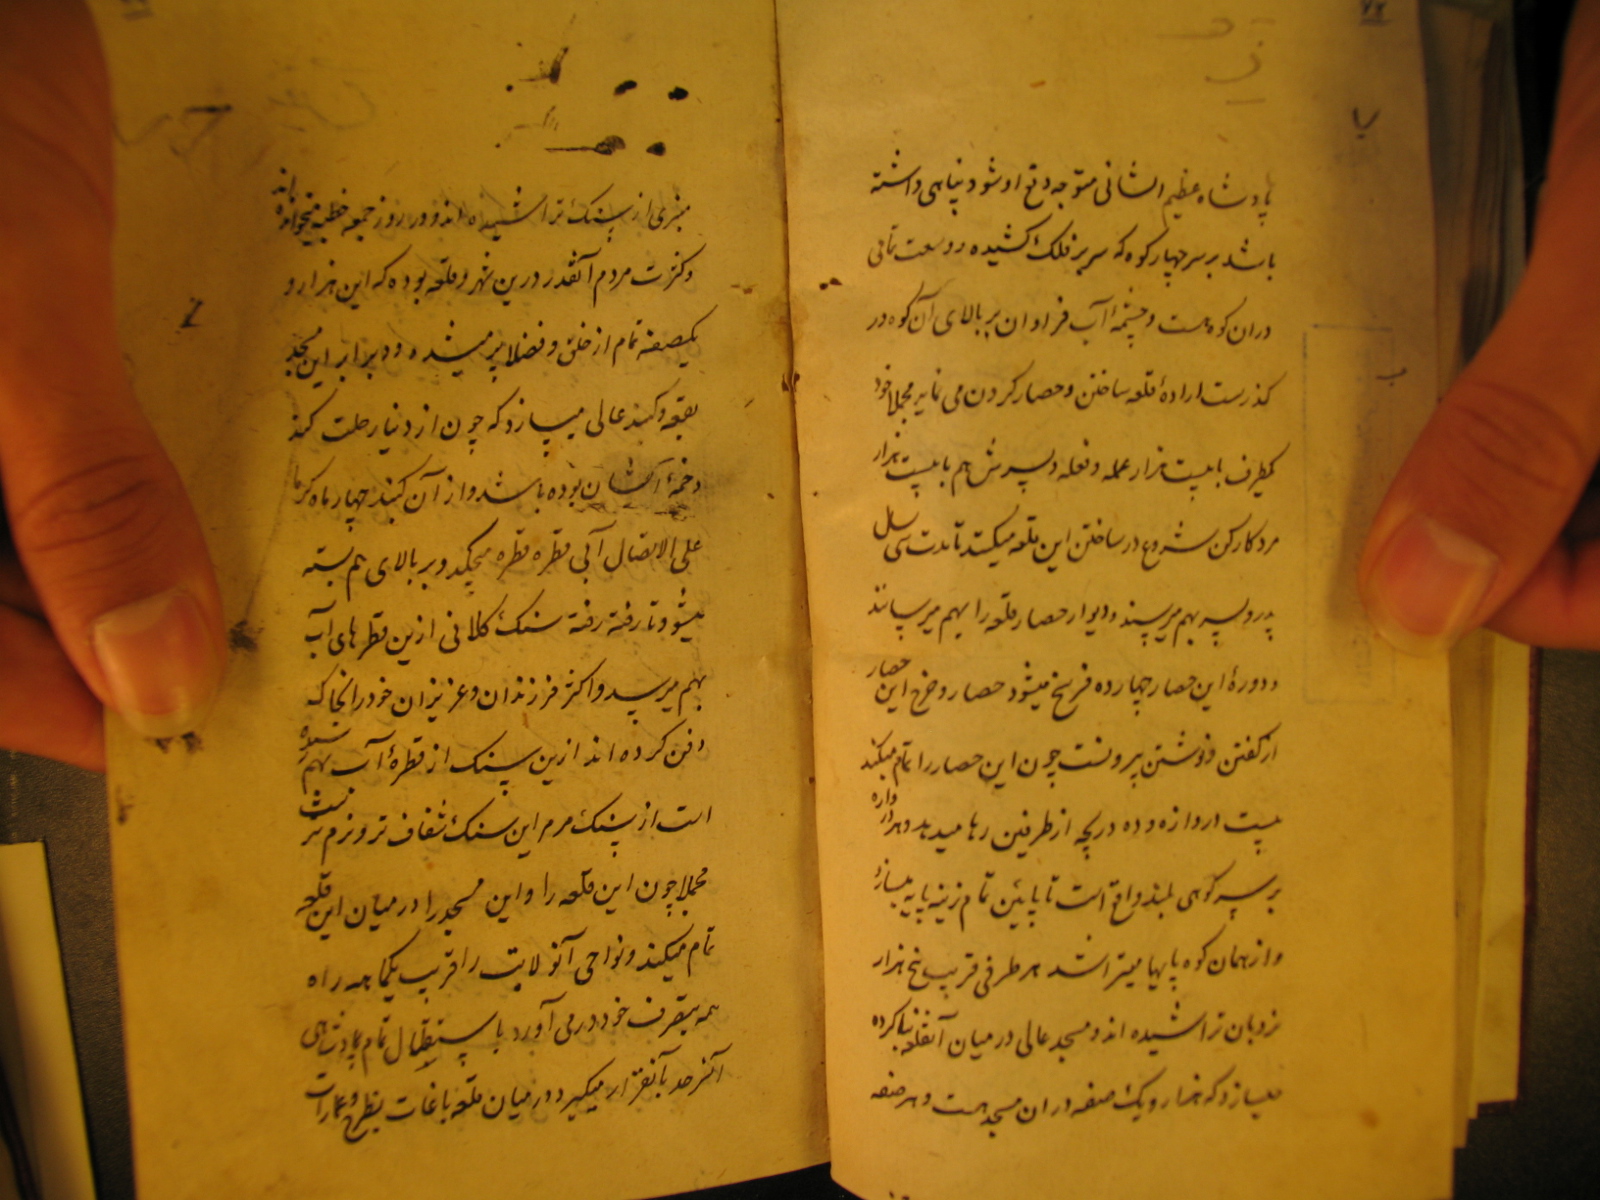 پادشاه عظیم الشانی متوجه دفع او شود پناهی داشته
باشد بر سر چهار کوه که سر بر فلک کشیده و وسعت تمامی
دران کوه هست و چشمهٔ آب فراوان بر بالای آن کوه در
کذرست ارادهٔ قلعه ساختن و حصار کردن می نماید مجملا خود
یکطرف با بیست هزار عمله و فعله و پسرش هم با بیست هزار
مرد کارکن شروع در ساختن این قلعه میکنند تا مدت سی سال
پدر و پسر بهم میرسند و دیوار حصار قلعه را بهم میرسانند
و دورهٔ این حصار چهارده فرسخ میشود حصار و خرج این حصار
از کفتن و نوشتن بیرونست چون این حصار را تمام میکند
بیست دروازه و ده دریچه از طرفین رها میدهد و هر دروازه
بر سر کوهی بلند واقع است تا پایین تمام زینه پایه میسازد
و از همان کوه پایها میتراشند هر طرفی قریب پنج هزار
نردبان تراشیده اند و مسجد عالی در میان آنقلعه بنا کرده
میسازد که هزار و یک صفه دران مسجد هست و هر صفه
منبری از سنک تراشیده اند و در روز جمعه خطبه میخوانده اند
و کثرت مردم آنقدر درین شهر و قلعه بوده که این هزار و
یکصفه تمام از خلق و فضلا پر میشده و در برابر این مسجد
بقعه و کنبد عالی میسازد که چون از دنیا رحلت کند
دخمهٔ ایشان بوده باشد و از آن کنبد چهار ماه کرما
علی الاتصال آبی قطره قطره میچکد و بر بالای هم بسته
میشود تا رفته رفته سنک کلانی ازین قطرهای آب
بهم میرسد و اکثر فرزندان و عزیزان خود را انجا که
دفن کرده اند ازین سنک از قطرهٔ آب بهم رسیده
است از سنک مرمر این سنک شفاف تر و نرم تر است
مجملا چون این قلعه را و این مسجد را در میان این قلعه
تمام میکند و نواحی آنولایت را قریب یکماهه راه
همه بتصرف خود در می آورد با ستقلال تمام پادشاهی
آنسرحد بآنقرار میکیرد و در میان قلعه باغات بطرح و عمارات